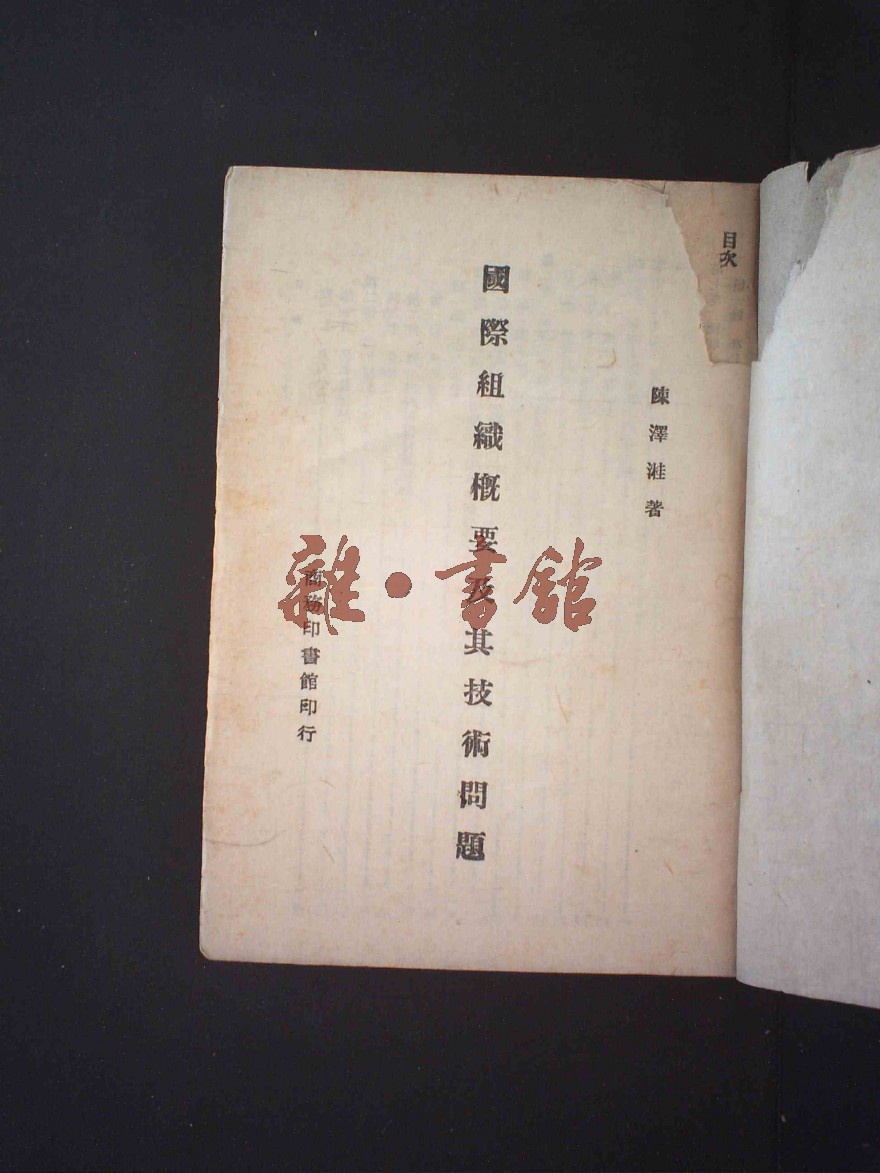 目次
陳澤溎著
國際組織概要及其技術問題
商務印書館印行
雜·書館